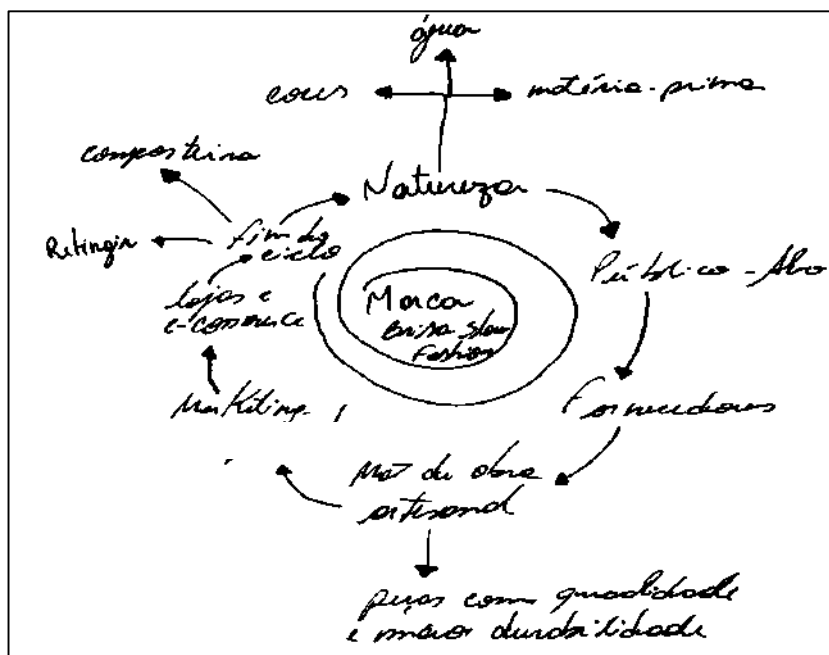 água
cores
matéria-prima
composteira
Natureza
Retingir
fim do
ciclo
Público-Alvo
lojas e
e-commerce
Marca
Brisa Slow
Fashion
Marketing
Fornecedores
Mão de obra
artesanal
peças com qualidade
e maior durabilidade